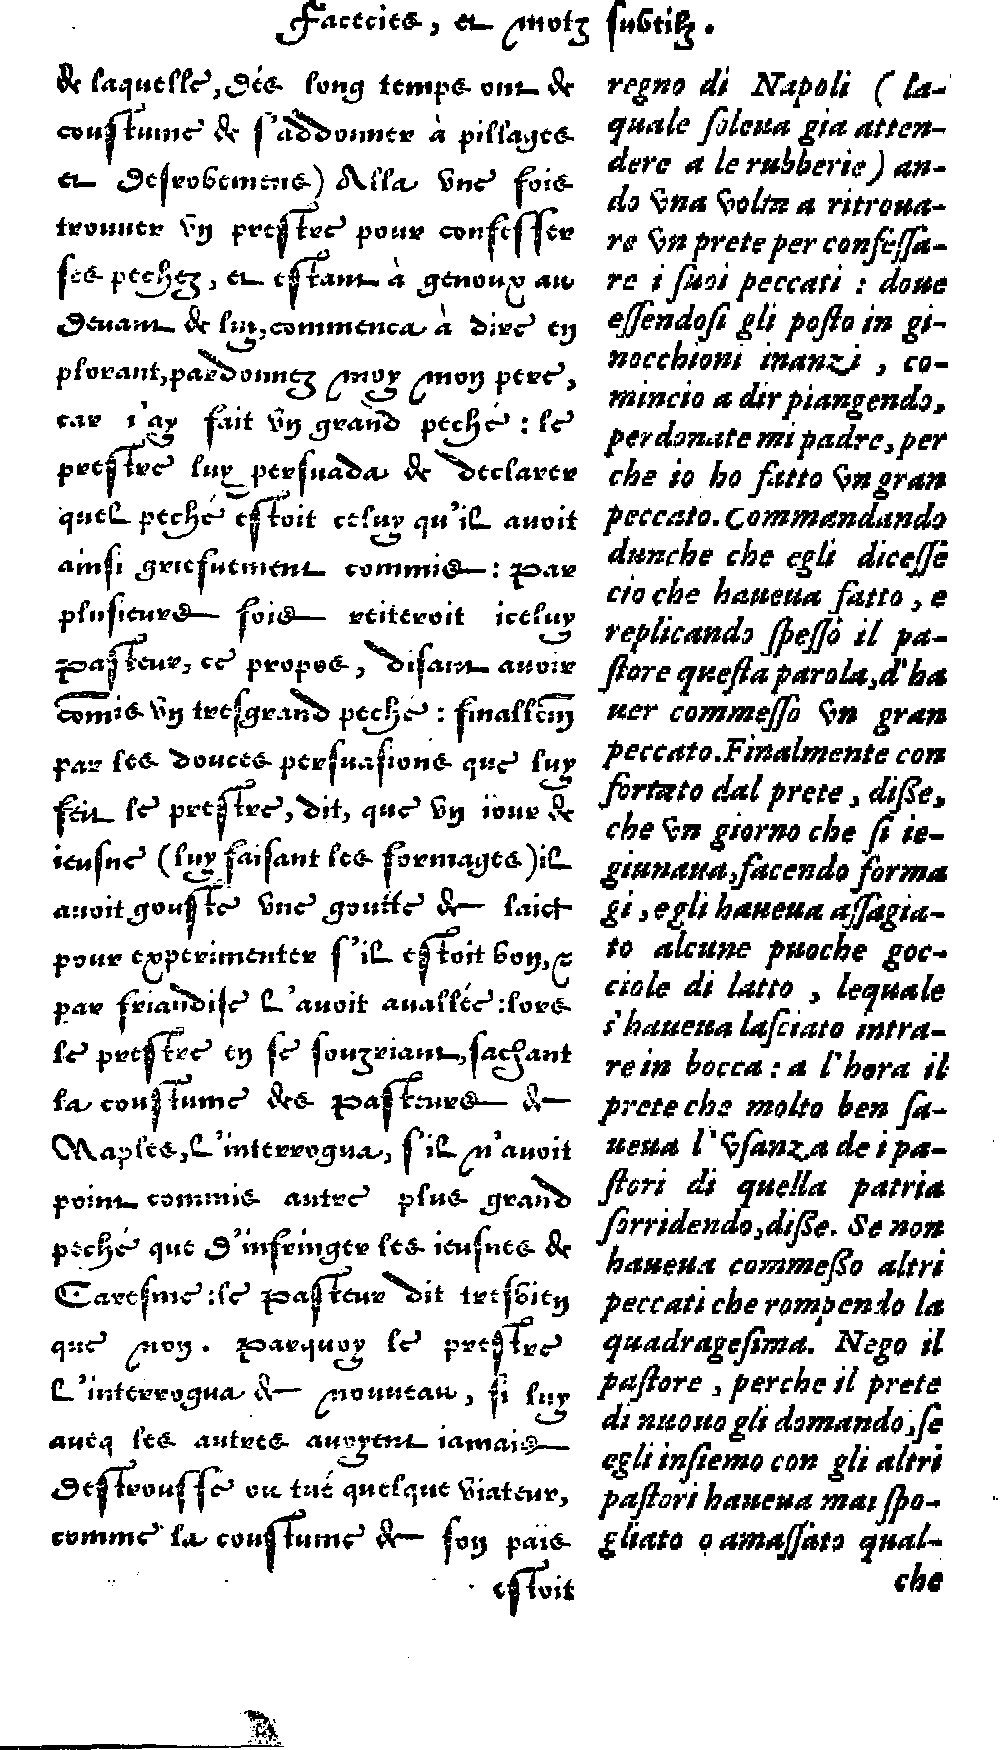 Facecies, et motz subtilz.
de laquelle, dés long temps ont de
coustume de s'addonner à pillages
et desrobemens) Alla vne fois
trouuer vn prestre pour confesser
ses pechez, et estant à genoux au
deuant de luy, commenca à dire en
plorant, pardonnez moy mon pere,
car i'ay fait vn grand peché : le
prestre luy persuada de declarer
quel peché estoit celuy qu'il auoit
ainsi griefuement commis : Par
plusieurs fois reiteroit iceluy
Pasteur, ce propos, disant auoir
cōmis vn tresgrand peché : finallemēt
par les douces persuasions que luy
feit le prestre, dit, que vn iour de
ieusne (luy faisant les formages) il
auoit gousté vne goutte de laict
pour experimenter s'il estoit bon, &
par friandise l'auoit auallée : lors
le prestre en se souzriant, sachant
la coustume des Pasteurs de
Naples, l'interrogua, s'il n'auoit
point commis autre plus grand
peché que d'infringer les ieusnes de
Caresme : le Pasteur dit tresbien
que non. Parquoy le prestre
l'interrogua de nouueau, si luy
aueq les autres auoyent iamais
destroussé ou tué quelque viateur,
comme la coustume de son païs
estoit
regno di Napoli ( la-
quale soleua gia atten-
dere a le rubberie) an-
do vna volta a ritroua-
re vn prete per confessa-
re i suoi peccati : doue
essendosi gli posto in gi-
nocchioni inanzi , co-
mincio a dir piangendo,
perdonate mi padre, per
che io ho fatto vn gran
peccato. Commandando
dunche che egli dicesse
cio che haueua fatto , e
replicando spesso il pa-
store questa parola, d'ha
uer commesso vn gran
peccato. Finalmente con
fortato dal prete , disse,
che vn giorno che si ie-
giunaua, facendo forma
gi , egli haueua assagia-
to alcune puoche goc-
ciole di latto , lequale
s'haueua lasciato intra-
re in bocca : a l'hora il
prete che molto ben sa-
ueua l'vsanza de i pa-
stori di quella patria
sorridendo, disse. Se non
haueua commesso altri
peccati che rompendo la
quadragesima. Nego il
pastore , perche il prete
di nuouo gli domando, se
egli insiemo con gli altri
pastori haueua mai spo-
gliato o amassato qual-
che